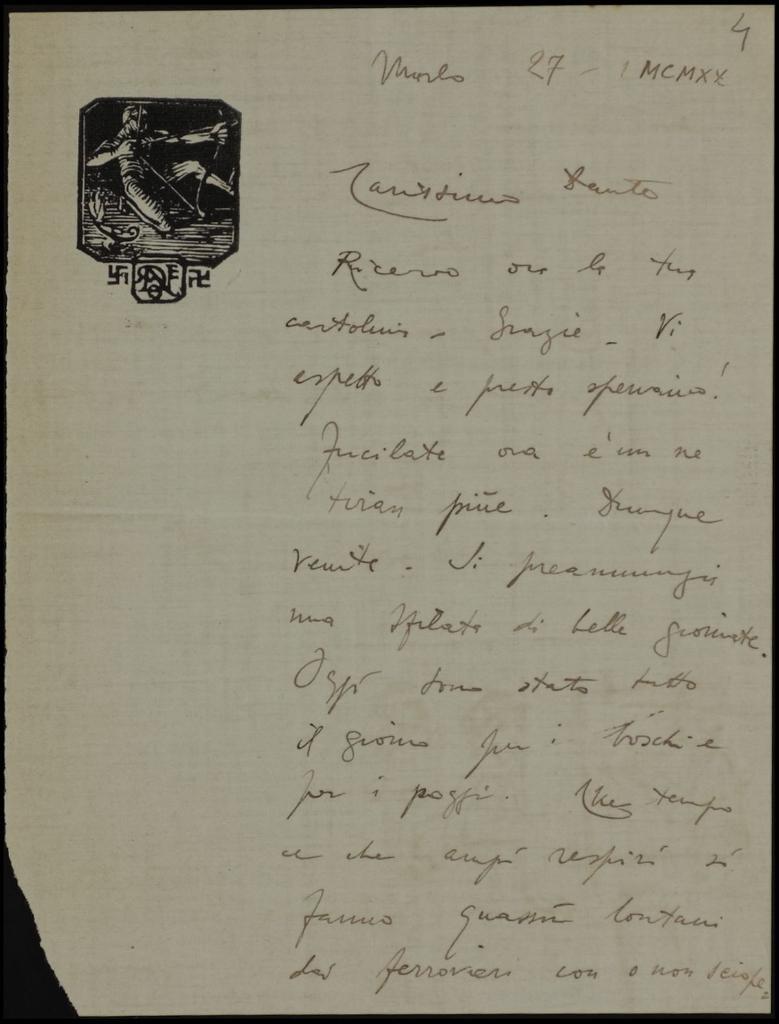 4
27 - 1 MCMXX
Carissimo Dante
Ricevo ora la tua
cartolina - Grazie - Vi
aspetto e presto speriamo!
Fucilate ora è un ne
tiran piue. Dunque
venite - Si preannunzia
una sfilata di belle giornate.
Oggi sono stato tutto
il giorno per i boschi e
per i poggi. Che tempo
e che ampi respiri si
fanno quassù lontani
dai ferrovieri con o non sciope=